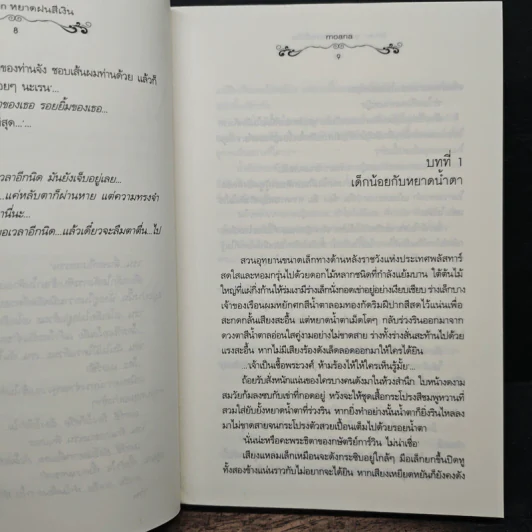 ก หยาดฝนสีเงิน
8
ของท่านจัง ชอบเส้นผมท่านด้วย แล้วก็
อยๆ นะเรน'...
าของเธอ รอยยิ้มของเธอ...
ที่สุด...'...
วลาอีกนิด มันยังเจ็บอยู่เลย...
...แค่หลับตาก็ผ่านหาย แต่ความทรงจำ
านี่นะ...
ขอเวลาอีกนิด...แล้วเดี๋ยวจะลืมตาตื่น...ไป
moana
9
บทที่ 1
เด็กน้อยกับหยาดน้ำตา
สวนอุทยานขนาดเล็กทางด้านหลังราชวังแห่งประเทศพลัสทาร์
สดใสและหอมกรุ่นไปด้วยดอกไม้หลากชนิดที่กำลังแย้มบาน ใต้ต้นไม้
ใหญ่ที่แผ่กิ่งก้านให้ร่มเงามีร่างเล็กนั่งกอดเข่าอยู่อย่างเงียบเชียบ ร่างเล็กบาง
เจ้าของเรือนผมหยักศกสีน้ำตาลอมทองกัดริมฝีปากสีสดไว้แน่นเพื่อ
สะกดกลั้นเสียงสะอื้น แต่หยาดน้ำตาเม็ดโตๆ กลับร่วงรินออกมาจาก
ดวงตาสีน้ำตาลอ่อนใสคู่งามอย่างไม่ขาดสาย ร่างทั้งร่างสั่นสะท้านไปด้วย
แรงสะอื้น หากไม่มีเสียงร้องดังเล็ดลอดออกมาให้ใครได้ยิน
'...เจ้าเป็นเชื้อพระวงศ์, ห้ามร้องไห้ให้ใครเห็นรู้มั้ย'...
ถ้อยรับสั่งหนักแน่นของใครบางคนดังมาในห้วงสำนึก ใบหน้างดงาม
สมวัยก้มลงซบกับเข่าที่กอดอยู่ หวังจะให้ชุดเสื้อกระโปรงสีชมพูหวานที่
สวมใส่ยับยั้งหยาดน้ำตาที่ร่วงริน หากยิ่งทำอย่างนั้นน้ำตาก็ยิ่งรินไหลลง
มาไม่ขาดสายจนกระโปรงตัวสวยเปื้อนเต็มไปด้วยรอยน้ำตา
'นั่นน่ะหรือคะพระธิดาของกษัตริย์การ์ริน ไม่น่าเชื่อ'
เสียงแหลมเล็กเหมือนจะดังกระซิบอยู่ใกล้ๆ มือเล็กยกขึ้นปิดหู
ทั้งสองข้างแน่นราวกับไม่อยากจะได้ยิน หากเสียงเหยียดหยันก็ยังคงดัง